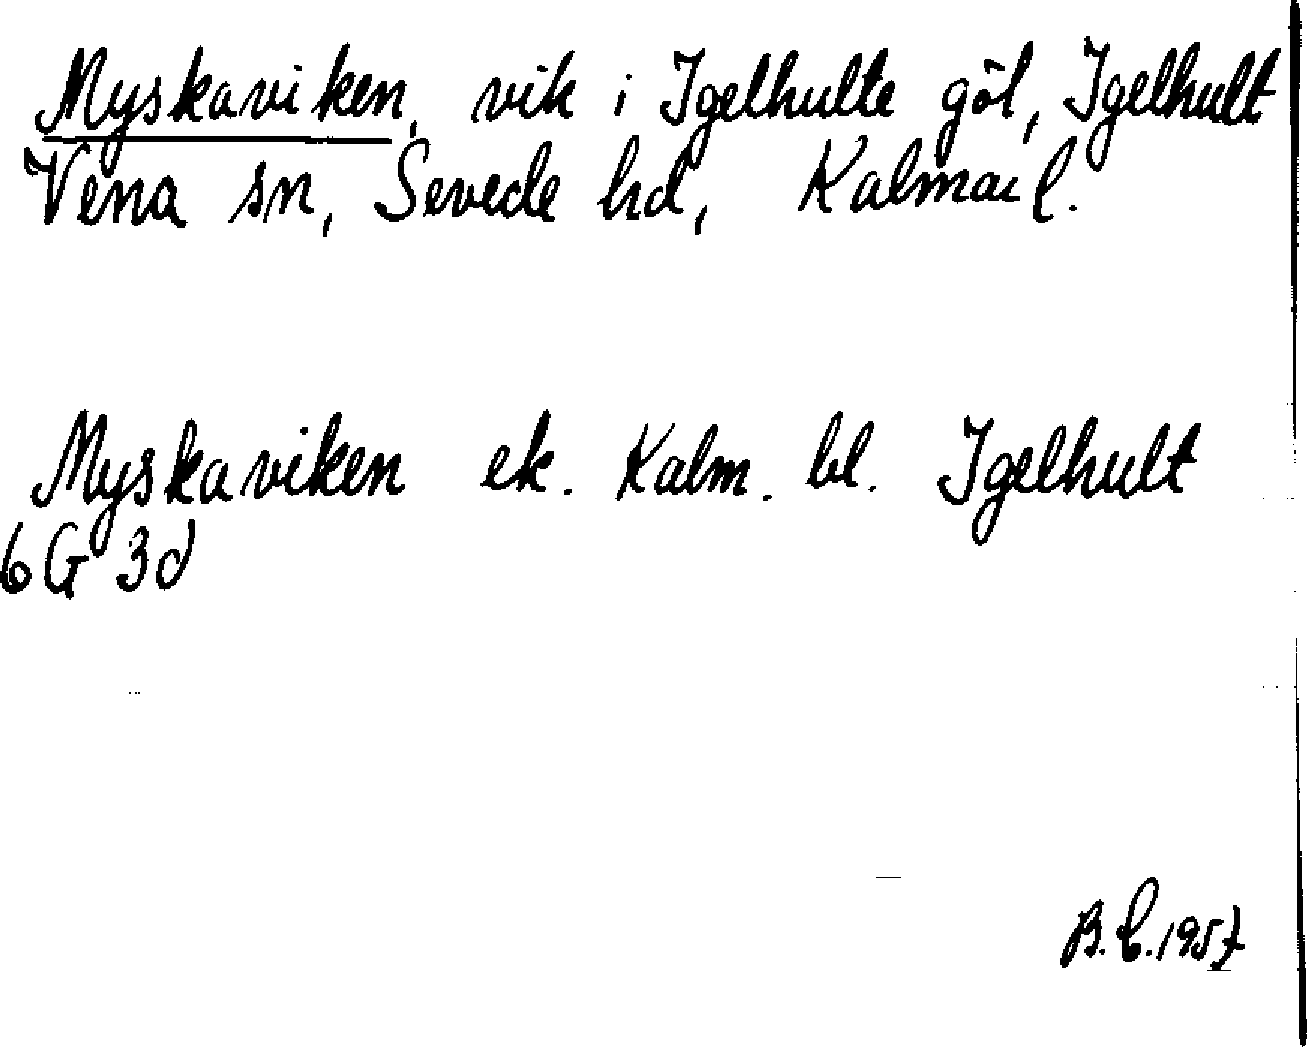 Myskaviken, vik i Igelhulte göl, Igelhult
Vena sn, Sevede hd, Kalmar l.
Myskaviken ek. Kalm. bl. Igelhult
6G 3d
B.C. 1957